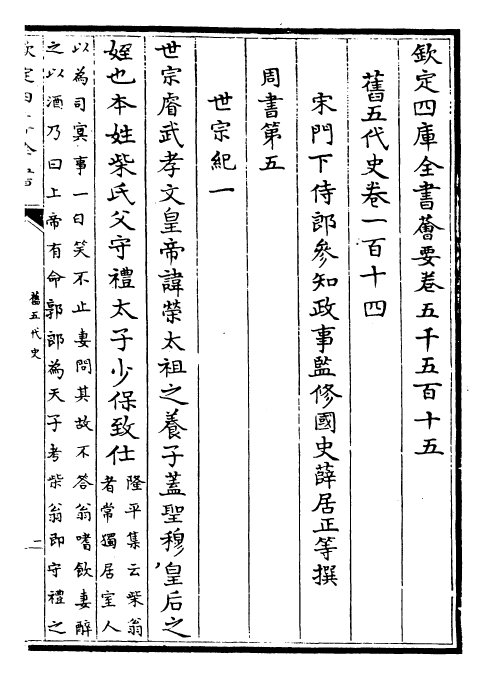 欽定四庫全書薈要卷五千五百十五
舊五代史卷一百十四
宋門下侍郎參知政事監修國史薛居正等撰
周書第五
世宗紀一
世宗睿武孝文皇帝諱榮太祖之養子蓋聖穆皇后之
姪也本姓柴氏父守禮太子少保致仕
隆平集云柴翁
者常獨居室人
以為司冥事一日笑不止妻問其故不答翁嗜飲妻醉
之以酒乃曰上帝有命郭郎為天子考柴翁即守禮之
欽定四庫全書
舊五代史
一